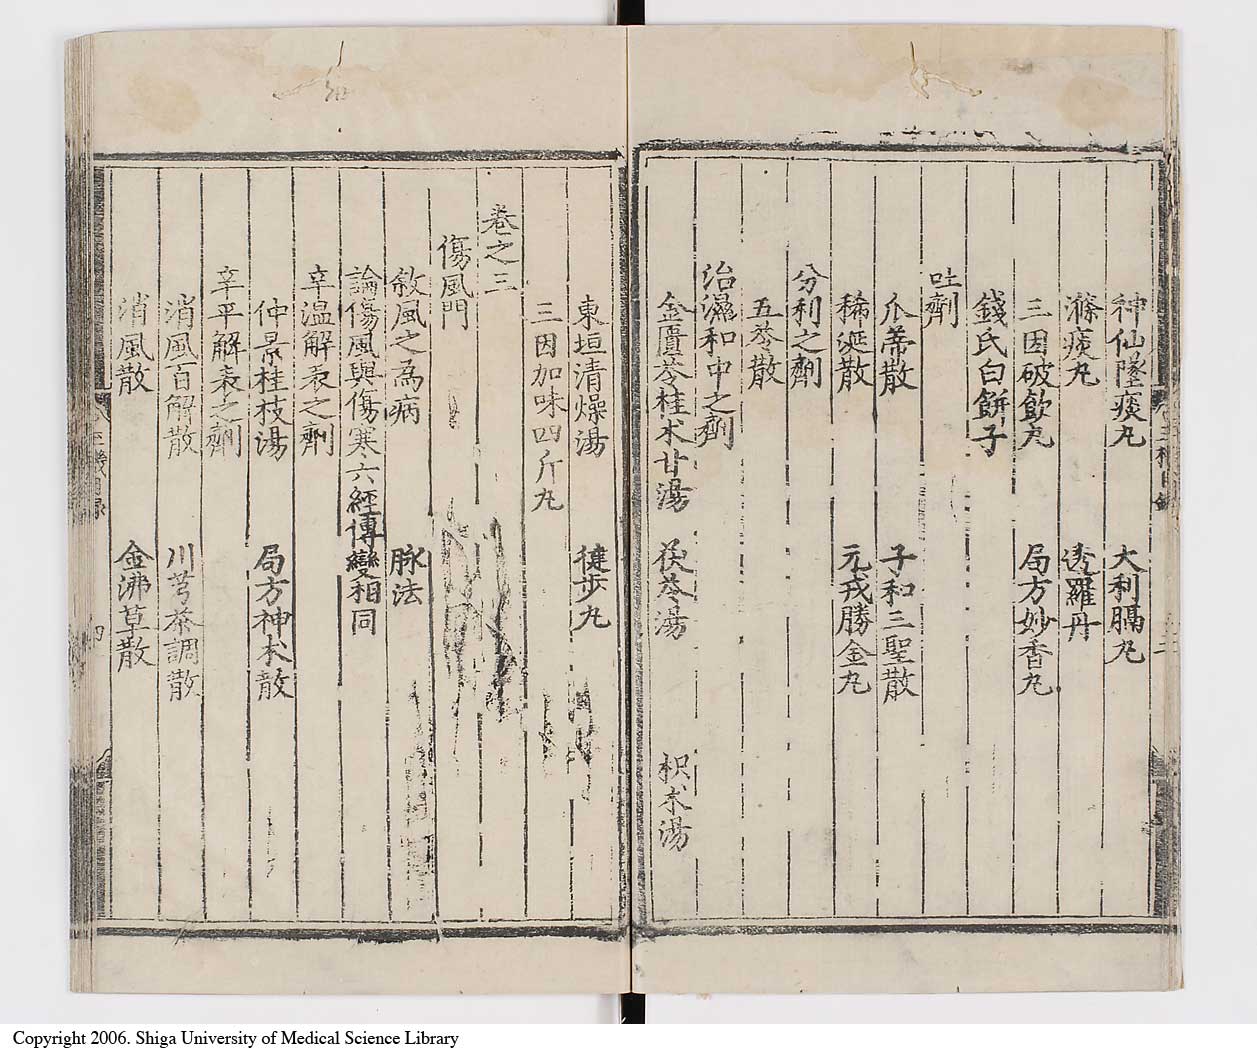 神仙墜痰丸　大利膈丸
滌痰丸　透羅丹
三因破飲丸　局方妙香丸
錢氏白餅子
吐劑
瓜蒂散　子和三聖散
稀涎散　元戎勝金丸
分利之劑
五苓散
治濕和中之劑
金匱苓桂朮甘湯　茯苓湯　枳朮湯
東垣清燥湯　健步丸
三因加味四斤丸
卷之三
傷風門
敘風之為病　脉法
論傷風與傷寒六經傳變相同
辛温解表之劑
仲景桂枝湯　局方神朮散
辛平解表之劑
消風百解散　川芎茶調散
消風散　金沸草散
四
Copyright 2006. Shiga University of Medical Science Library